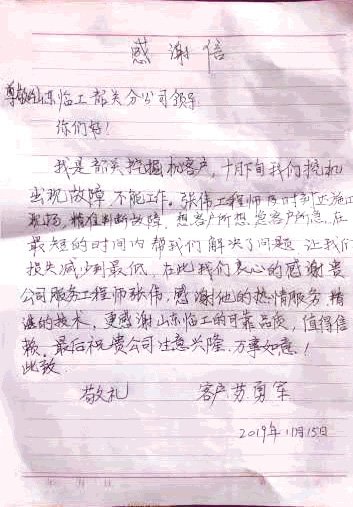 感谢信
尊敬的山东临工韶关分公司领导:
你们好!
我是韶关挖掘机客户,十月下旬我们挖机
出现故障不能工作。张伟工程师及时到达施工
现场,精准判断故障,想客户所想,急客户所急,在
最短的时间内帮我们解决了问题,让我们
损失减少到最低,在此我们衷心的感谢贵
公司服务工程师张伟,感谢他的热情服务,精
湛的技术,更感谢山东临工的可靠品质,值得信
赖。最后祝贵公司生意兴隆,万事如意!
此致
敬礼 客户 苏勇军
2019年11月15日